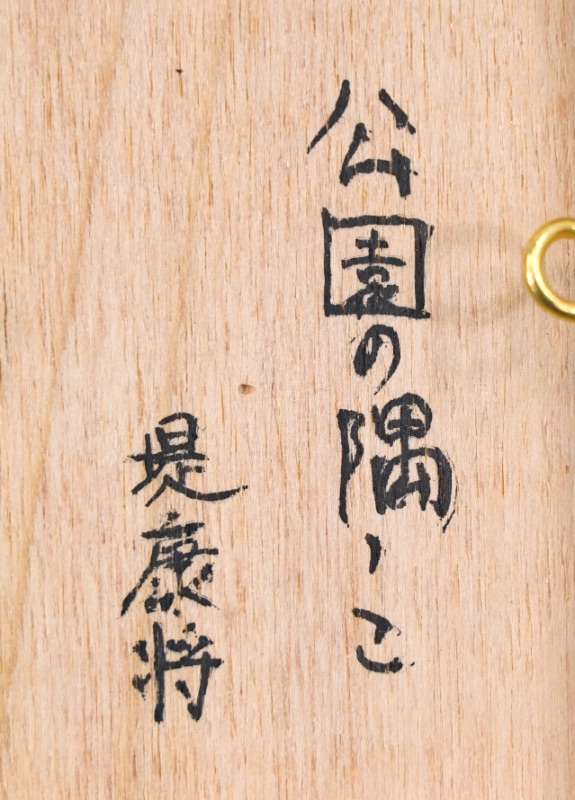 公園の隅、こ
堤康将